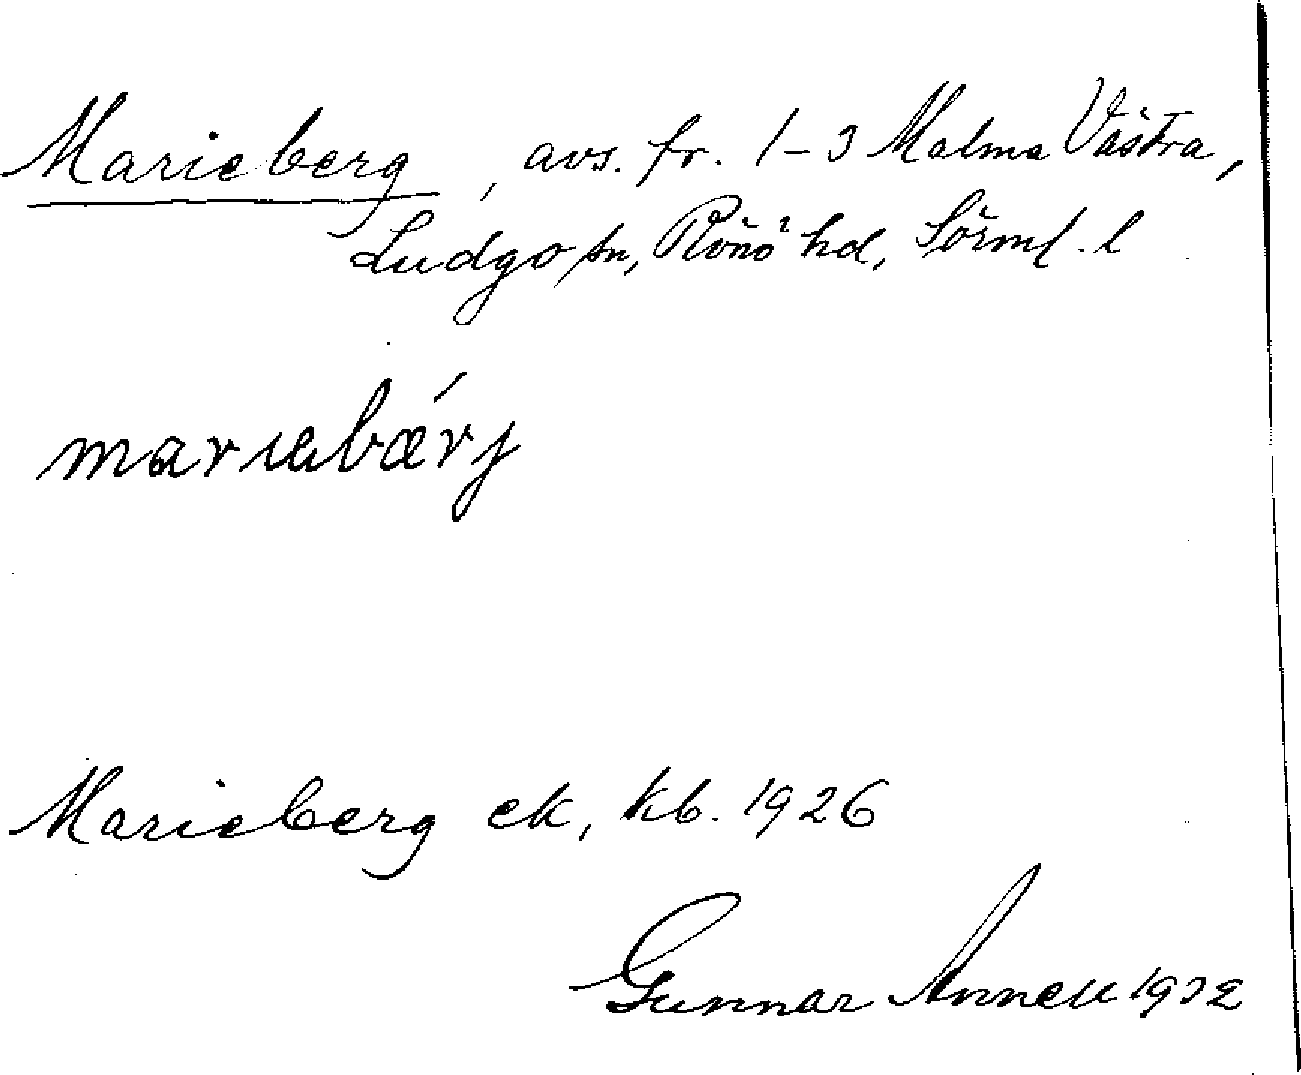 Marieberg, avs. fr. 1-3 Malma Västra,
Ludgo sn, Rönö hd, Sörml. l
Marieberg ek, kb. 1926
Gunnar Annell 1932